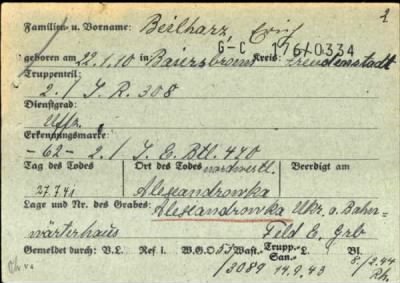 2
Familien- u. Vorname: Beilharz,
G-C 176/0334
geboren am 22.1.10 in Baiersbronn Kreis: Freudenstadt
Truppenteil:
2./ J. R. 308
Dienstgrad:
Uffz.
Erkennungsmarke:
-62- 2./ J. E. Btl. 470
Tag des Todes Ort des Todes nordwestl. Beerdigt am
27.7.41 Alexandrowka
Lage und Nr. des Grabes: Alexandrowka Ukr. a. Bahn-
wärterhaus Feld E. Grb
Gemeldet durch: V.L. Ref i. W.G.O 55 Wast.- Trupp.- San.- L. Bl.
/3089 14.9.43 8./2.44